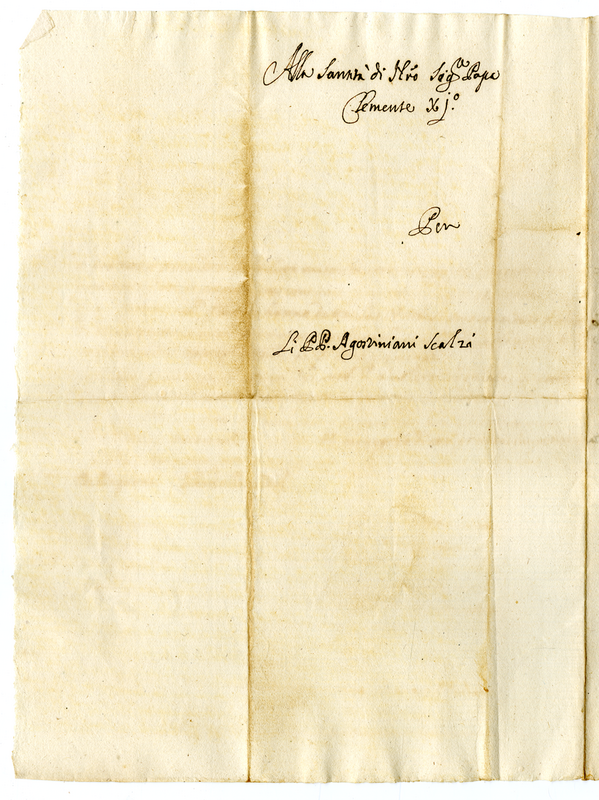 Alla Santità di Nrõ Sig.re Papa
Clemente XJ.º
Per
Li PP. Agostiniani Scalzi